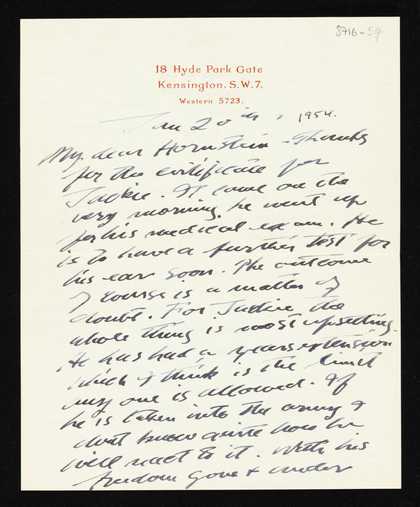 5716-59
18 Hyde Park Gate
Kensington. S.W.7.
Western 5723.
Jan 20th, 1954.
My dear Hornstein - Thanks
for the certificate for
Jackie. It came on the
very morning he went up
for his medical exam. He
is to have a further test for
his ear soon. The outcome
of course is a matter of
doubt. For Jackie the
whole thing is most upsetting.
He has had a years extension
which I think is the limit
any one is allowed. If
he is taken into the army I
dont know quite how he
will react to it. With his
freedom gone & under